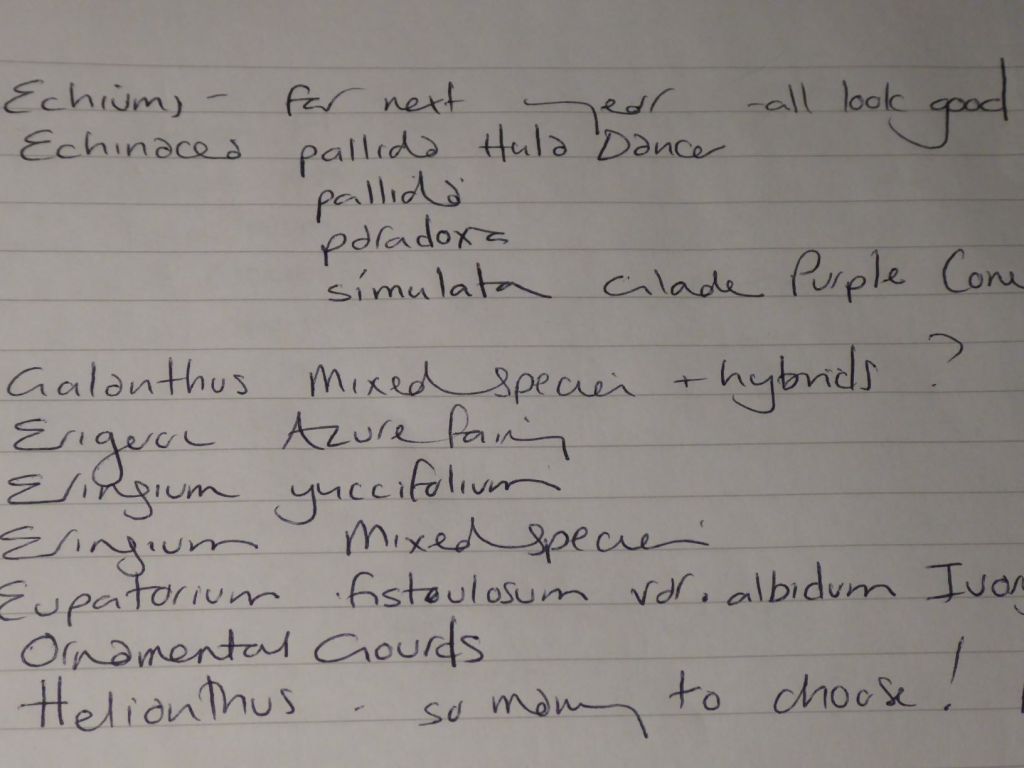 Echiums - for next year - all look good
Echinacea pallida Hula Dancer
pallida
paradoxa
simulata Glade Purple Cone
Galanthus Mixed species + hybrids ?
Erigeron Azure Fairy
Eringium yuccifolium
Eringium Mixed species
Eupatorium fistoulosum var. albidum Ivory
Ornamental Gourds
Helianthus - so many to choose!